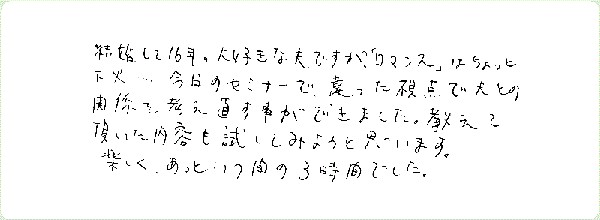 結婚して16年。大好きな夫ですが、「ロマンス」はちょっと
下火… 今日のセミナーで、違った視点で夫との
関係を、考え直す事ができました。教えて
頂いた内容も試してみようと思います。
楽しく、あっという間の3時間でした。